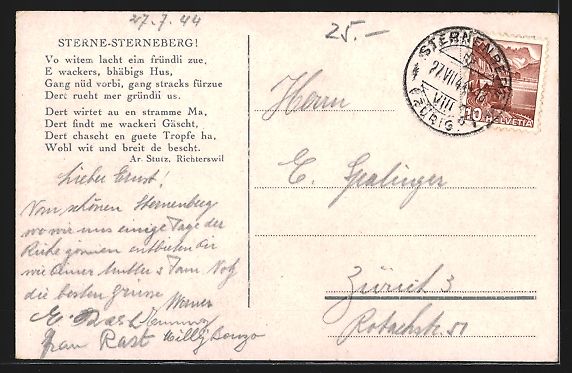 27.7.44
25.-
STERNE-STERNEBERG!
Vo witem lacht eim fründli zue,
E wackers, bhäbigs Hus,
Gang nüd vorbi, gang stracks fürzue
Dert rueht mer gründli us.
Dert wirtet au en stramme Ma,
Dert findt me wackeri Gäscht,
Dert chascht en guete Tropfe ha,
Wohl wit und breit de bescht.
Ar. Stutz, Richterswil
STERNENBERG
27.VII.44
VIII
(ZÜRICH)
10 HELVETIA
Herrn
E.
Zürich 3
Rotachstr. 51
Lieber Ernst!
Vom schönen Sternenberg
wo wir uns einige Tage der
Ruhe gönnen entbieten dir
wie deiner Mutter &
die besten Grüsse
Werner
Frau Rast Willy